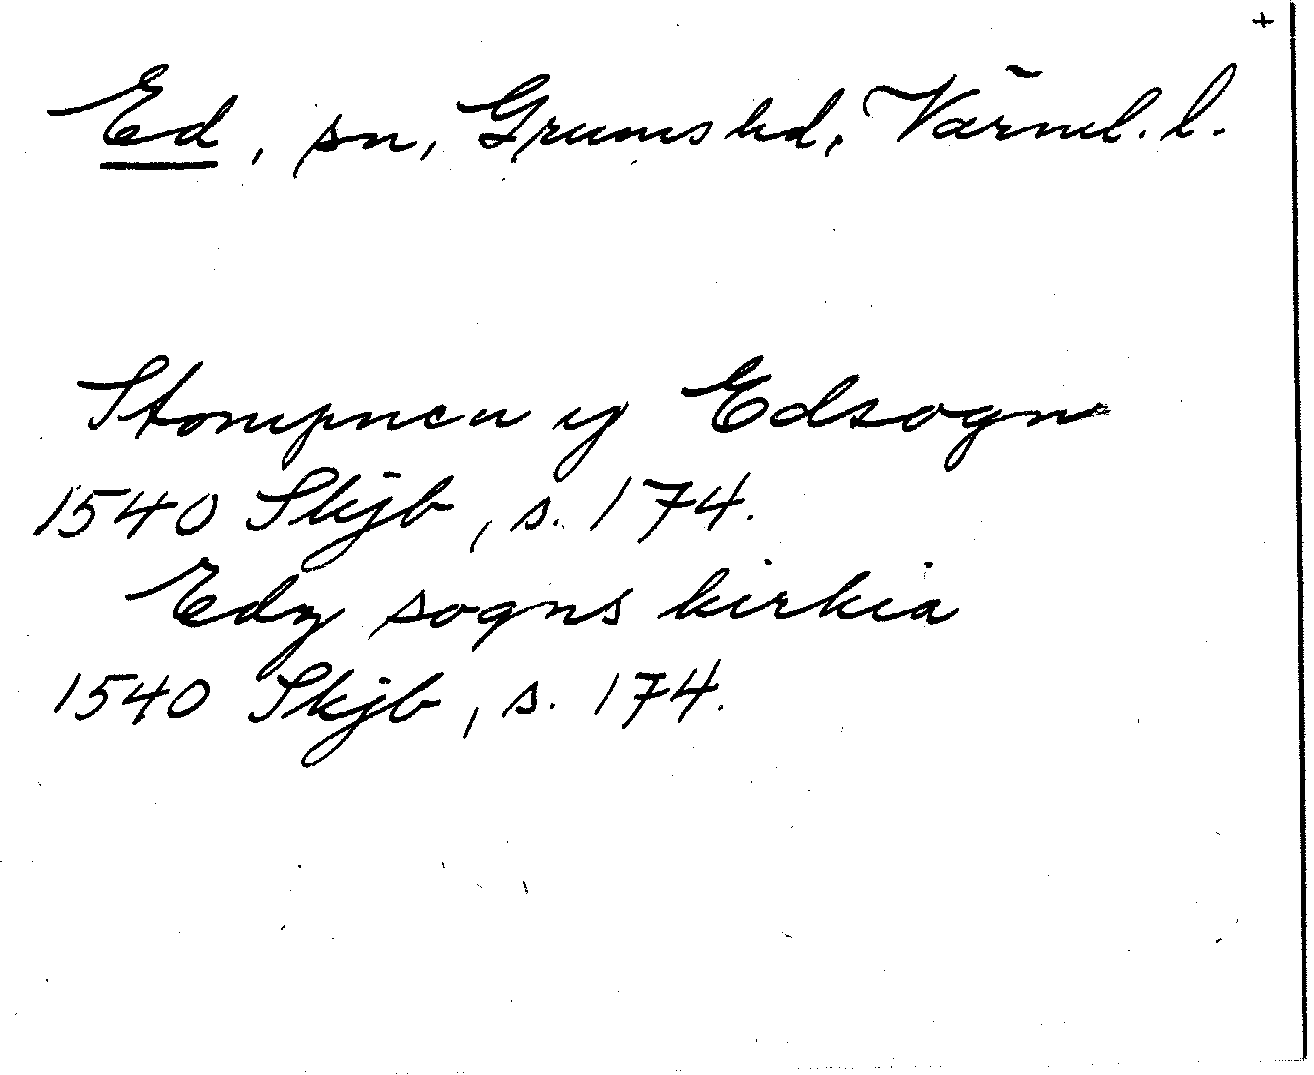 +
Ed, sn, Grums hd, Värml. l.
Stompnen y Edsogn
1540 Skjb, s. 174.
Edz sogns kirkia
1540 Skjb, s. 174.